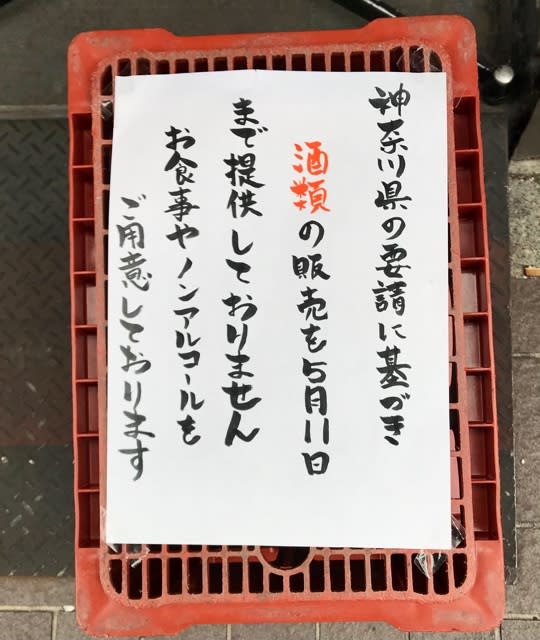 神奈川県の要請に基づき
酒類の販売を5月11日
まで提供しておりません
お食事やノンアルコールを
ご用意しております